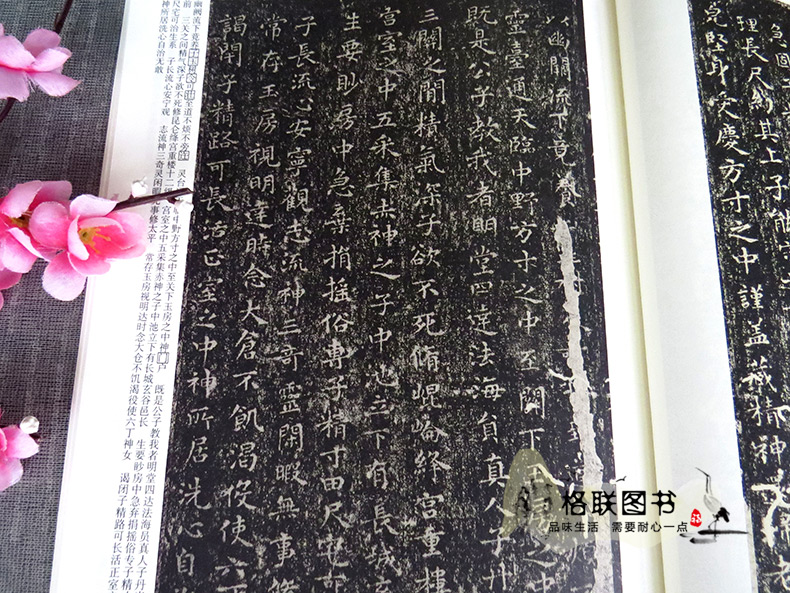 急固
理長尺約其上子能
堅身受慶方寸之中謹蓋藏精神
以幽關流下竟養
靈臺通天臨中野方寸之中至關下玉房之中
既是公子教我者明堂四達法海員真人子丹
三關之間精氣深子欲不死脩崐崘絳宮重樓
宮室之中五采集赤神之子中池立下有長城玄
生要眇房中急棄捐摇俗專子精寸田尺宅可
子長流心安寧觀志流神三奇靈閑暇無事脩
常存玉房視明達時念大倉不飢渴役使六丁
謁閉子精路可長活正室之中神所居洗心自治
幽阙流下竟养子玉树 可 至道不烦不旁迕 灵台 中野方寸之中至关下玉房之中神门户 既是公子教我者明堂四达法海员真人子丹
前 三天之间精气深子欲不死修昆仑绛宫重楼十二级宫室之中五采集赤神之子中池立下有长城玄谷邑长 生要眇房中急弃捐摇俗专子精
尺宅可治生系 子长流心安宁观 志流神三奇灵闲暇无事修太平 常存玉房视明达时念大仓不饥渴役使六丁神女 谒闭子精路可长活正室
神所居洗心自治无敢
格联图书
品味生活 需要耐心一点